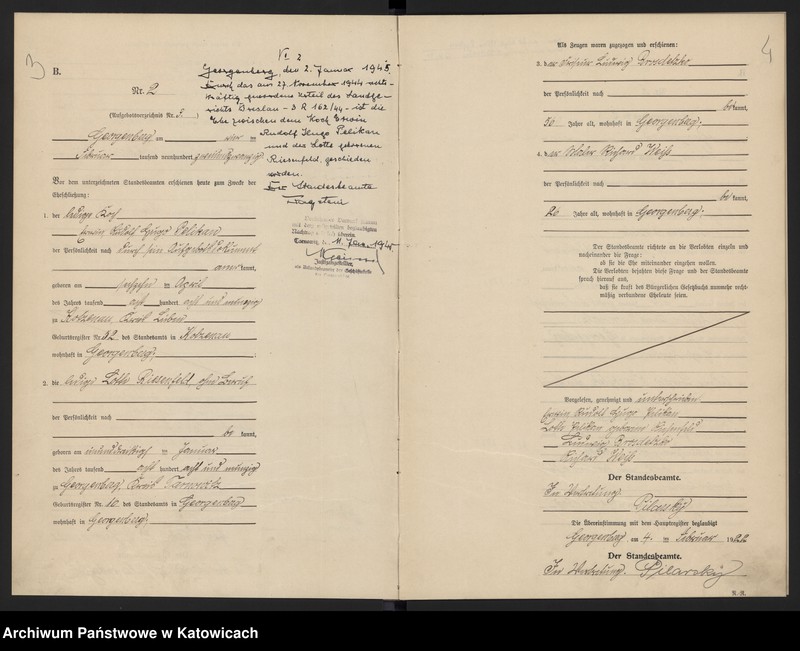 3
B.
Nr. 2
(Aufgebotsverzeichnis Nr. 3.)
Georgenberg am vier ten
Februar tausend neunhundert zweiundzwanzig
VI 2
Georgenberg, den 2. Januar 1945.
Durch das am 27. November 1944 rechts-
kräftig gewordene Urteil des Landge-
richts Breslau - 3 R 162/44 - ist die
Ehe zwischen dem Koch Erwin
Rudolf Hugo Pelikan
und der Lotte geborenen
Riesenfeld, geschieden
worden.
Der Standesbeamte
Vor dem unterzeichneten Standesbeamten erschienen heute zum Zwecke der
Eheschließung:
1. der ledige Koch
Erwin Rudolf Hugo Pelikan
der Persönlichkeit nach durch sein Aufgebotsdokument
anerkannt,
geboren am ten April
des Jahres tausend acht hundert acht und neunzig
zu Kotzenau, Kreis Lüben
Geburtsregister Nr. 32 des Standesamts in Kotzenau
wohnhaft in Georgenberg;
2. die ledige Lotte Riesenfeld, ohne Beruf
der Persönlichkeit nach
be kannt,
geboren am einunddreißigsten Januar
des Jahres tausend acht hundert acht und neunzig
zu Georgenberg, Kreis Tarnowitz
Geburtsregister Nr. 10 des Standesamts in Georgenberg
wohnhaft in Georgenberg.
Tarnowitz, d. 11. Jan. 1945
Justizangestellter,
als Urkundsbeamter der Geschäftsstelle
4
Als Zeugen waren zugezogen und erschienen:
3. der Ludwig
der Persönlichkeit nach
be kannt,
50 Jahre alt, wohnhaft in Georgenberg;
4. der Richard Weiß
der Persönlichkeit nach
be kannt,
20 Jahre alt, wohnhaft in Georgenberg;
Der Standesbeamte richtete an die Verlobten einzeln und
nacheinander die Frage:
ob sie die Ehe miteinander eingehen wollen.
Die Verlobten bejahten diese Frage und der Standesbeamte
sprach hierauf aus,
daß sie kraft des Bürgerlichen Gesetzbuchs nunmehr recht-
mäßig verbundene Eheleute seien.
Vorgelesen, genehmigt und unterschrieben
Erwin Rudolf Hugo Pelikan
Lotte Pelikan geborene Riesenfeld
Ludwig
Richard Weiß
Der Standesbeamte.
In Vertretung.
Pilarsky
Die Übereinstimmung mit dem Hauptregister beglaubigt
Georgenberg am 4. ten Februar 1922
Der Standesbeamte.
In Vertretung. Pilarsky
R. R.
Archiwum Państwowe w Katowicach